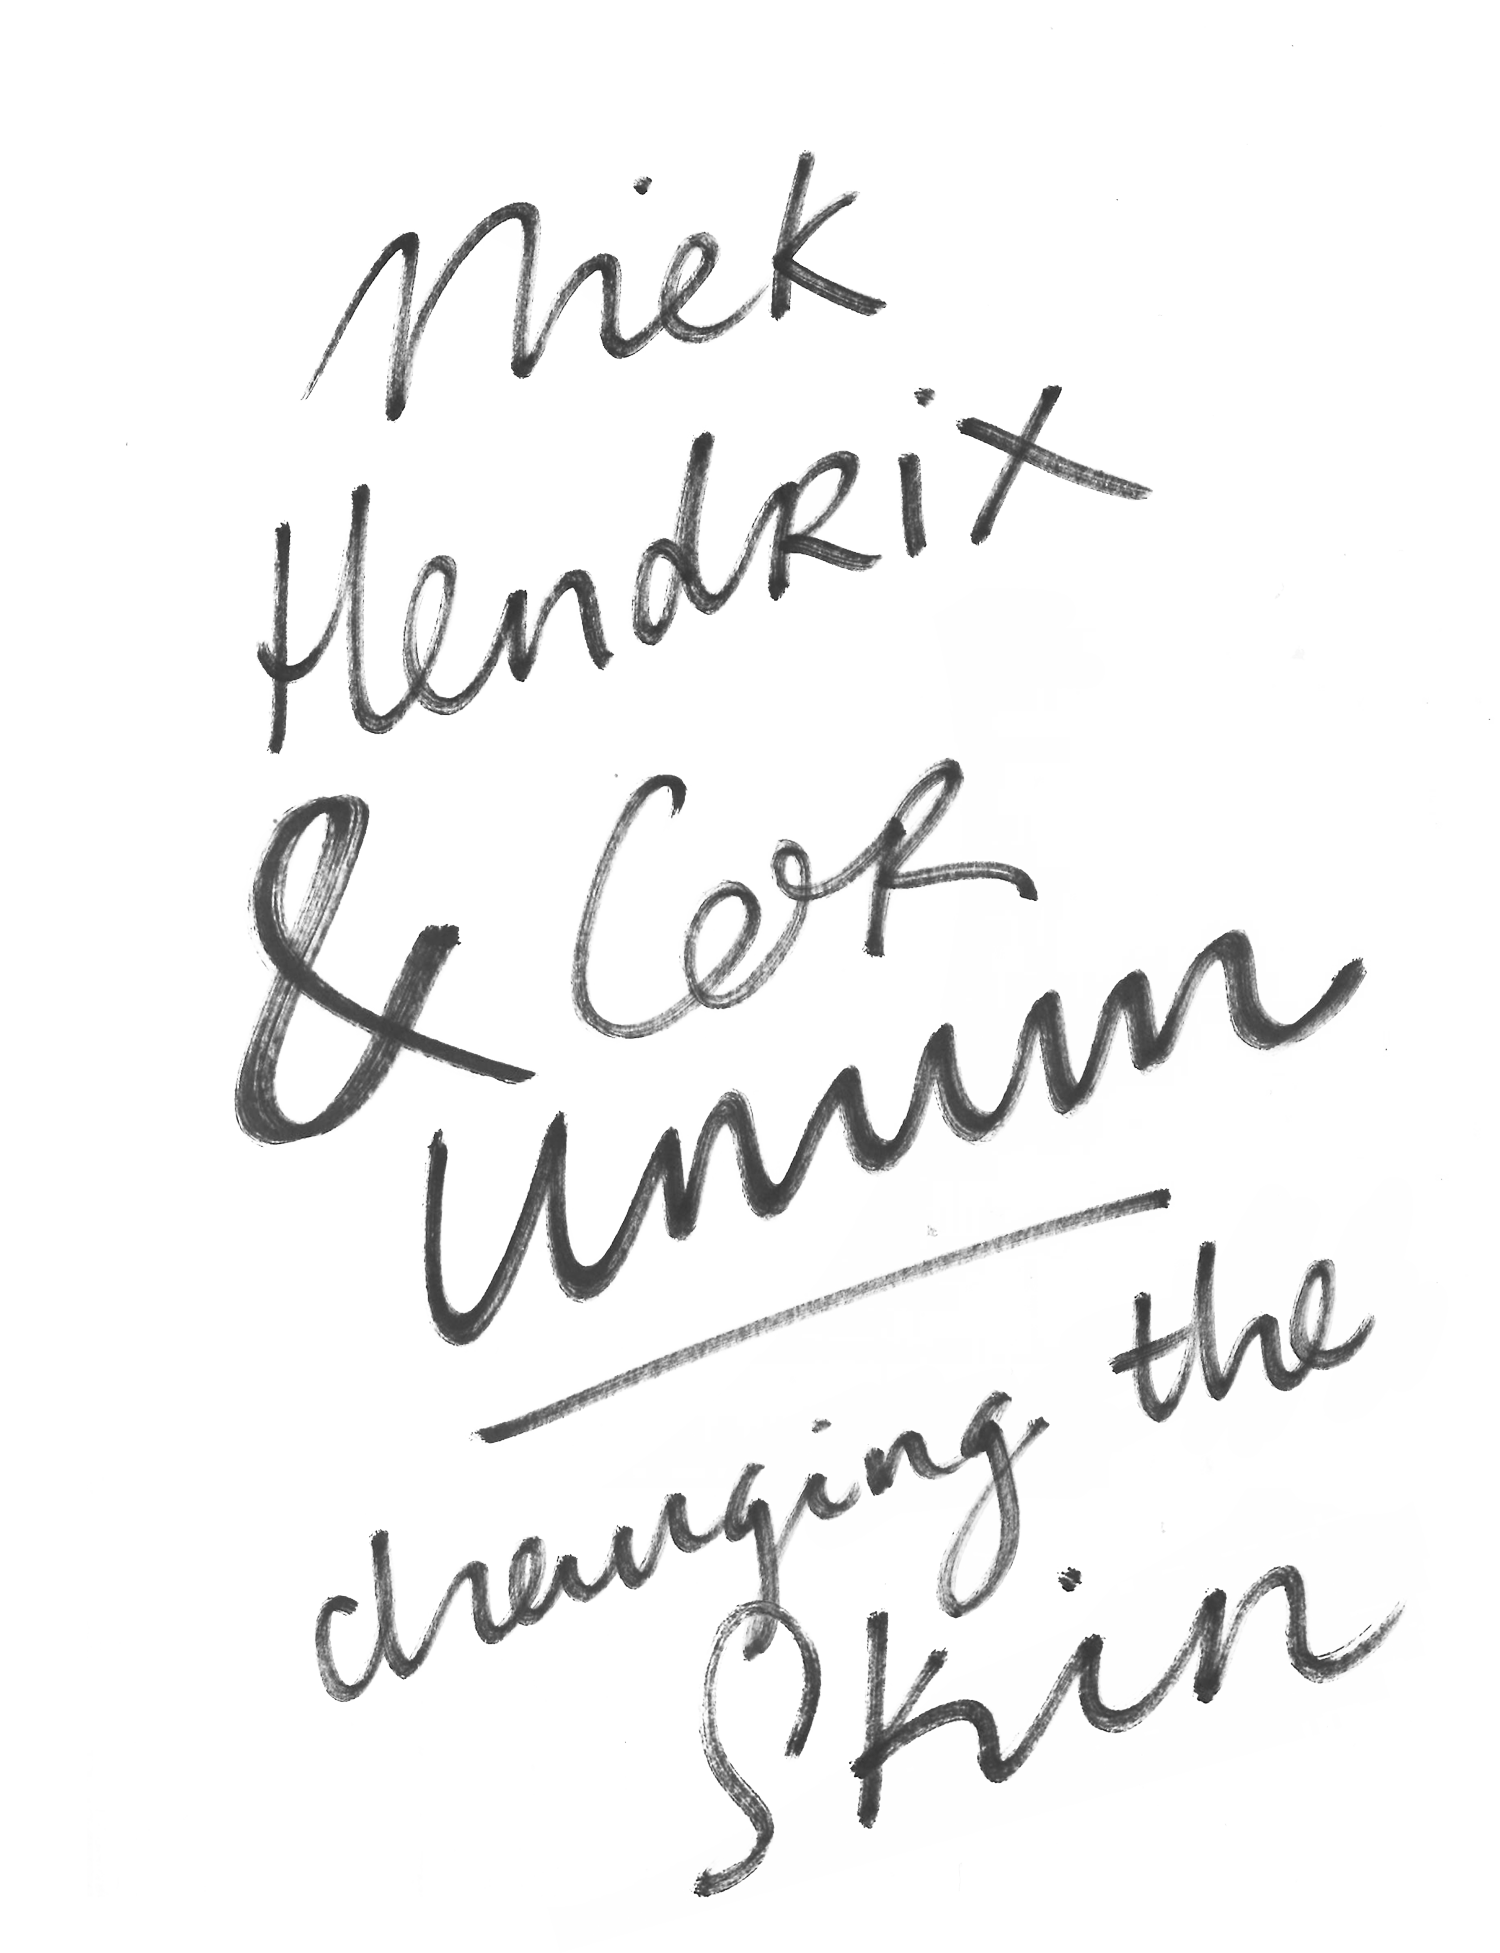 Niek
Hendrix
& Cor
Unum
changing the
Skin